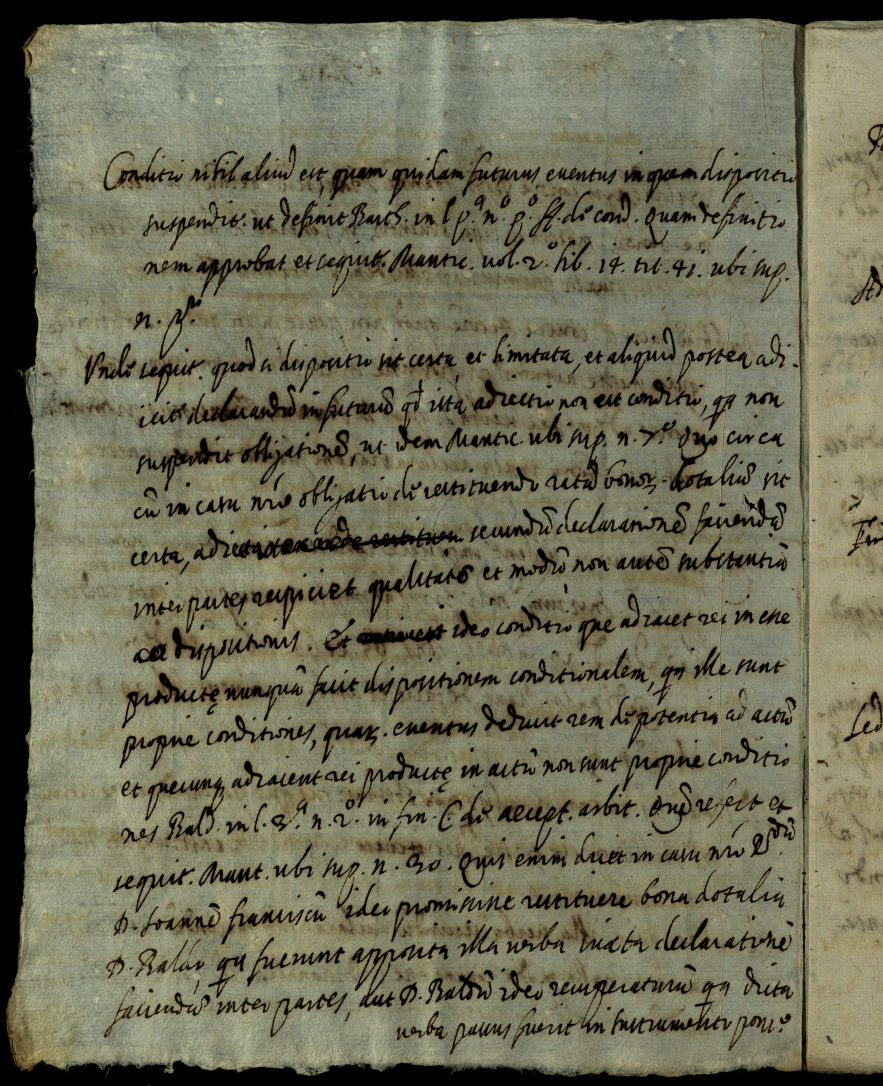 Conditio nihil aliud est, quam quidam futurus eventus in quem dispositio
suspendit. ut definit Barth. in l. p.ª n.º p.º ff. de cond. Quam definitio
nem approbat et sequit. Mantic. vol. 2.º lib. 14. tit. 41. ubi sup.
n. p.º
Unde sequit. quod si dispositio sit certa et limitata, et aliquid postea adi-
icit declarandũ in futurũ qđ ista adiectio non est conditio, qa non
suspendit obligationẽ, ut idem Mantic. ubi sup. n. Quo circa
cũ in casu nrõ obligatio de restituendo bonoꝝ dotaliũ sit
certa, secundũ declarationẽ faciendã
inter partes respiciet qualitatẽ et modũ non autẽ substantiã
dispositionis. Et ideo conditio que adiacet rei in esse
productę nunquã facit dispositionem conditionalem, qa ille sunt
proprie conditiones, quaꝝ eventus deducit rem de potentia ad actũ
et quecunq adiacent rei productę in actũ non sunt proprie conditio
nes Bald. in l. 3.ª n. 2.º in fin. C. de recept. arbit. quẽ refert et
sequit. Mant. ubi sup. n. 30. Quis enim dicet in casu nrõ
D. Joannẽ franciscũ ideo promisisse restituere bona dotalia
D. Baldo, qa fuerunt apposita illa verba iuxta declarationẽ
faciendã inter partes, aut D. Baldũ ideo recuperaturũ qa dicta
verba passus fuerit in Instrumento poni.